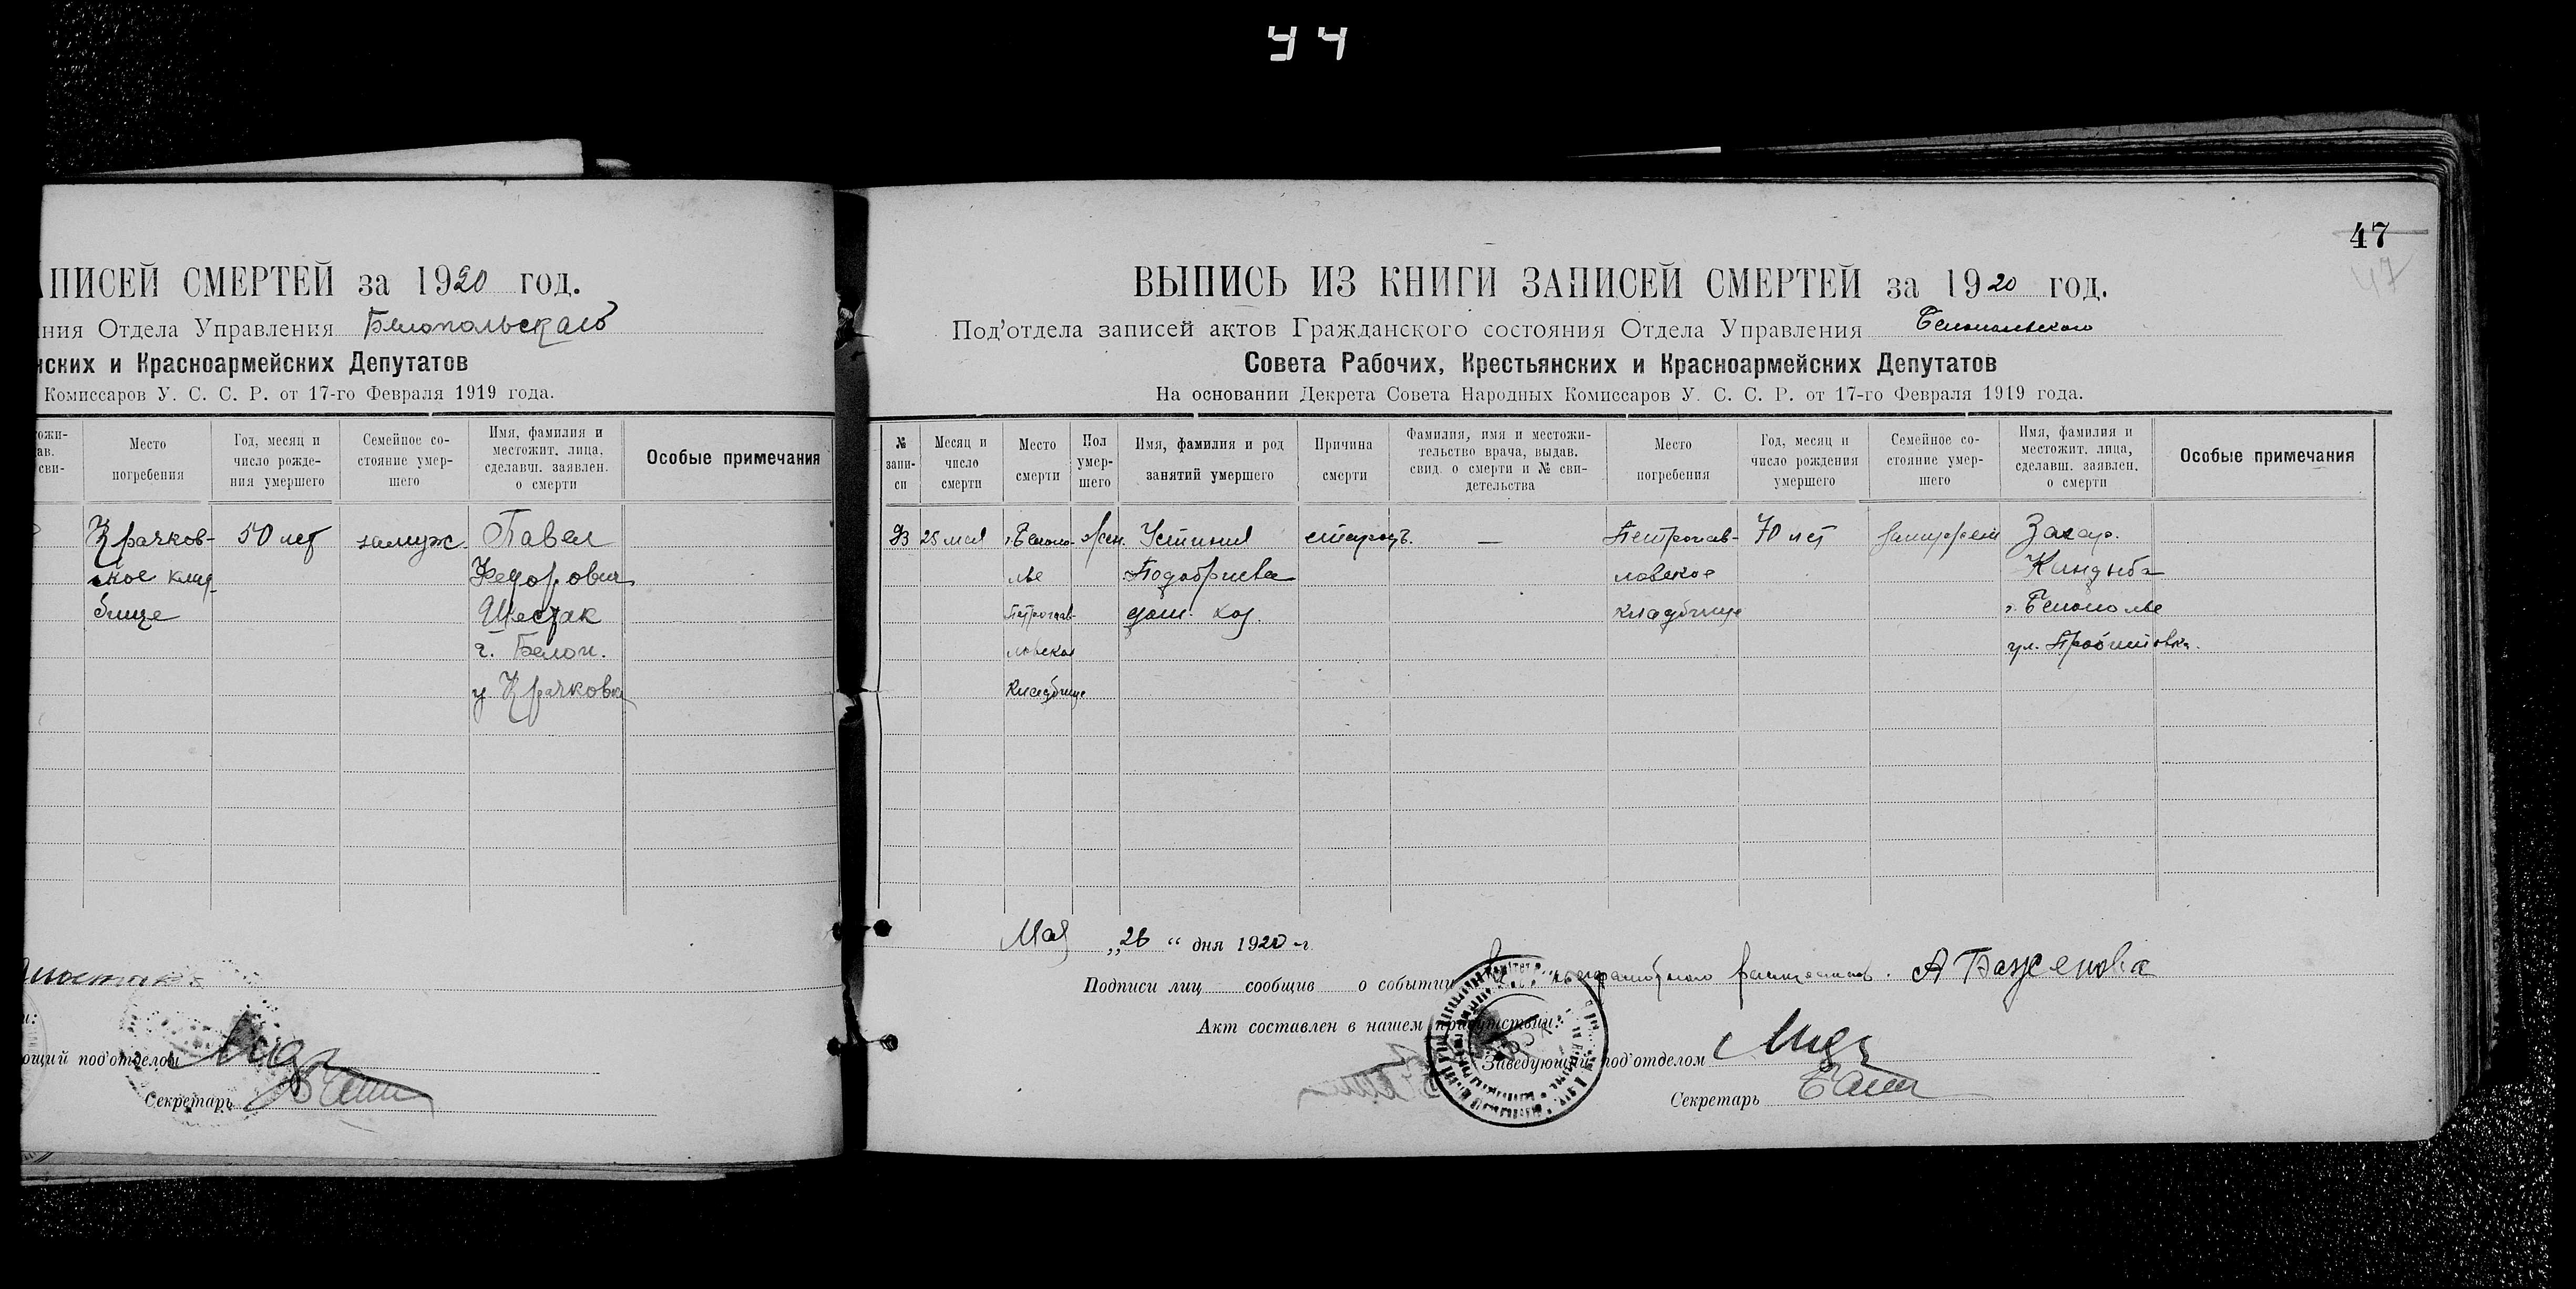 44
ПИСЕЙ СМЕРТЕЙ за 1920 год.
ния Отдела Управления Белопольскаго
нских и Красноармейских Депутатов
Комиссаров У. С. С. Р. от 17-го Февраля 1919 года.
ожи-
ав.
сви-
Место
погребения
Год, месяц и
число рожде-
ния умершего
Семейное со-
стояние умер-
шего
Имя, фамилия и
местожит. лица,
сделавш. заявлен.
о смерти
Особые примечания
Крачков-
ское клад-
бище
50 лет
замуж.
Павел
Федорович
Шестак
г. Белоп.
у Крачковка
ющий под'отделом
Секретарь
47
47
ВЫПИСЬ ИЗ КНИГИ ЗАПИСЕЙ СМЕРТЕЙ за 1920 год.
Под'отдела записей актов Гражданского состояния Отдела Управления Белопольского
Совета Рабочих, Крестьянских и Красноармейских Депутатов
На основании Декрета Совета Народных Комиссаров У. С. С. Р. от 17-го Февраля 1919 года.
№
запи-
си
Месяц и
число
смерти
Место
смерти
Пол
умер-
шего
Имя, фамилия и род
занятий умершего
Причина
смерти
Фамилия, имя и местожи-
тельство врача, выдав.
свид. о смерти и № сви-
детельства
Место
погребения
Год, месяц и
число рождения
умершего
Семейное со-
стояние умер-
шего
Имя, фамилия и
местожит. лица,
сделавш. заявлен.
о смерти
Особые примечания
25 мая
г. Белопо-
лье
Петропав-
ловское
кладбище
жен.
Устиния
дом. хоз.
—
Петропав-
ловское
кладбище
70 лет
Захар.
Киндыба
г. Белополье
ул.
Мая „26“ дня 1920 г.
Подписи лиц сообщив о событии А Баженова
Акт составлен в нашем присутствии:
Заведующий под'отделом
Секретарь